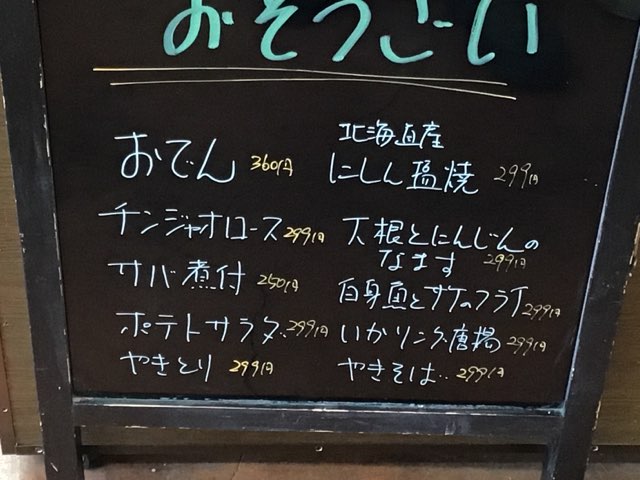 おそうざい
おでん 360円
チンジャオロース 299円
サバ煮付 250円
ポテトサラダ‥299円
やきとり 299円
北海道産
にしん塩焼 299円
大根とにんじんの
なます 299円
白身魚とサケのフライ 299円
いかリング唐揚 299円
やきそば‥299円